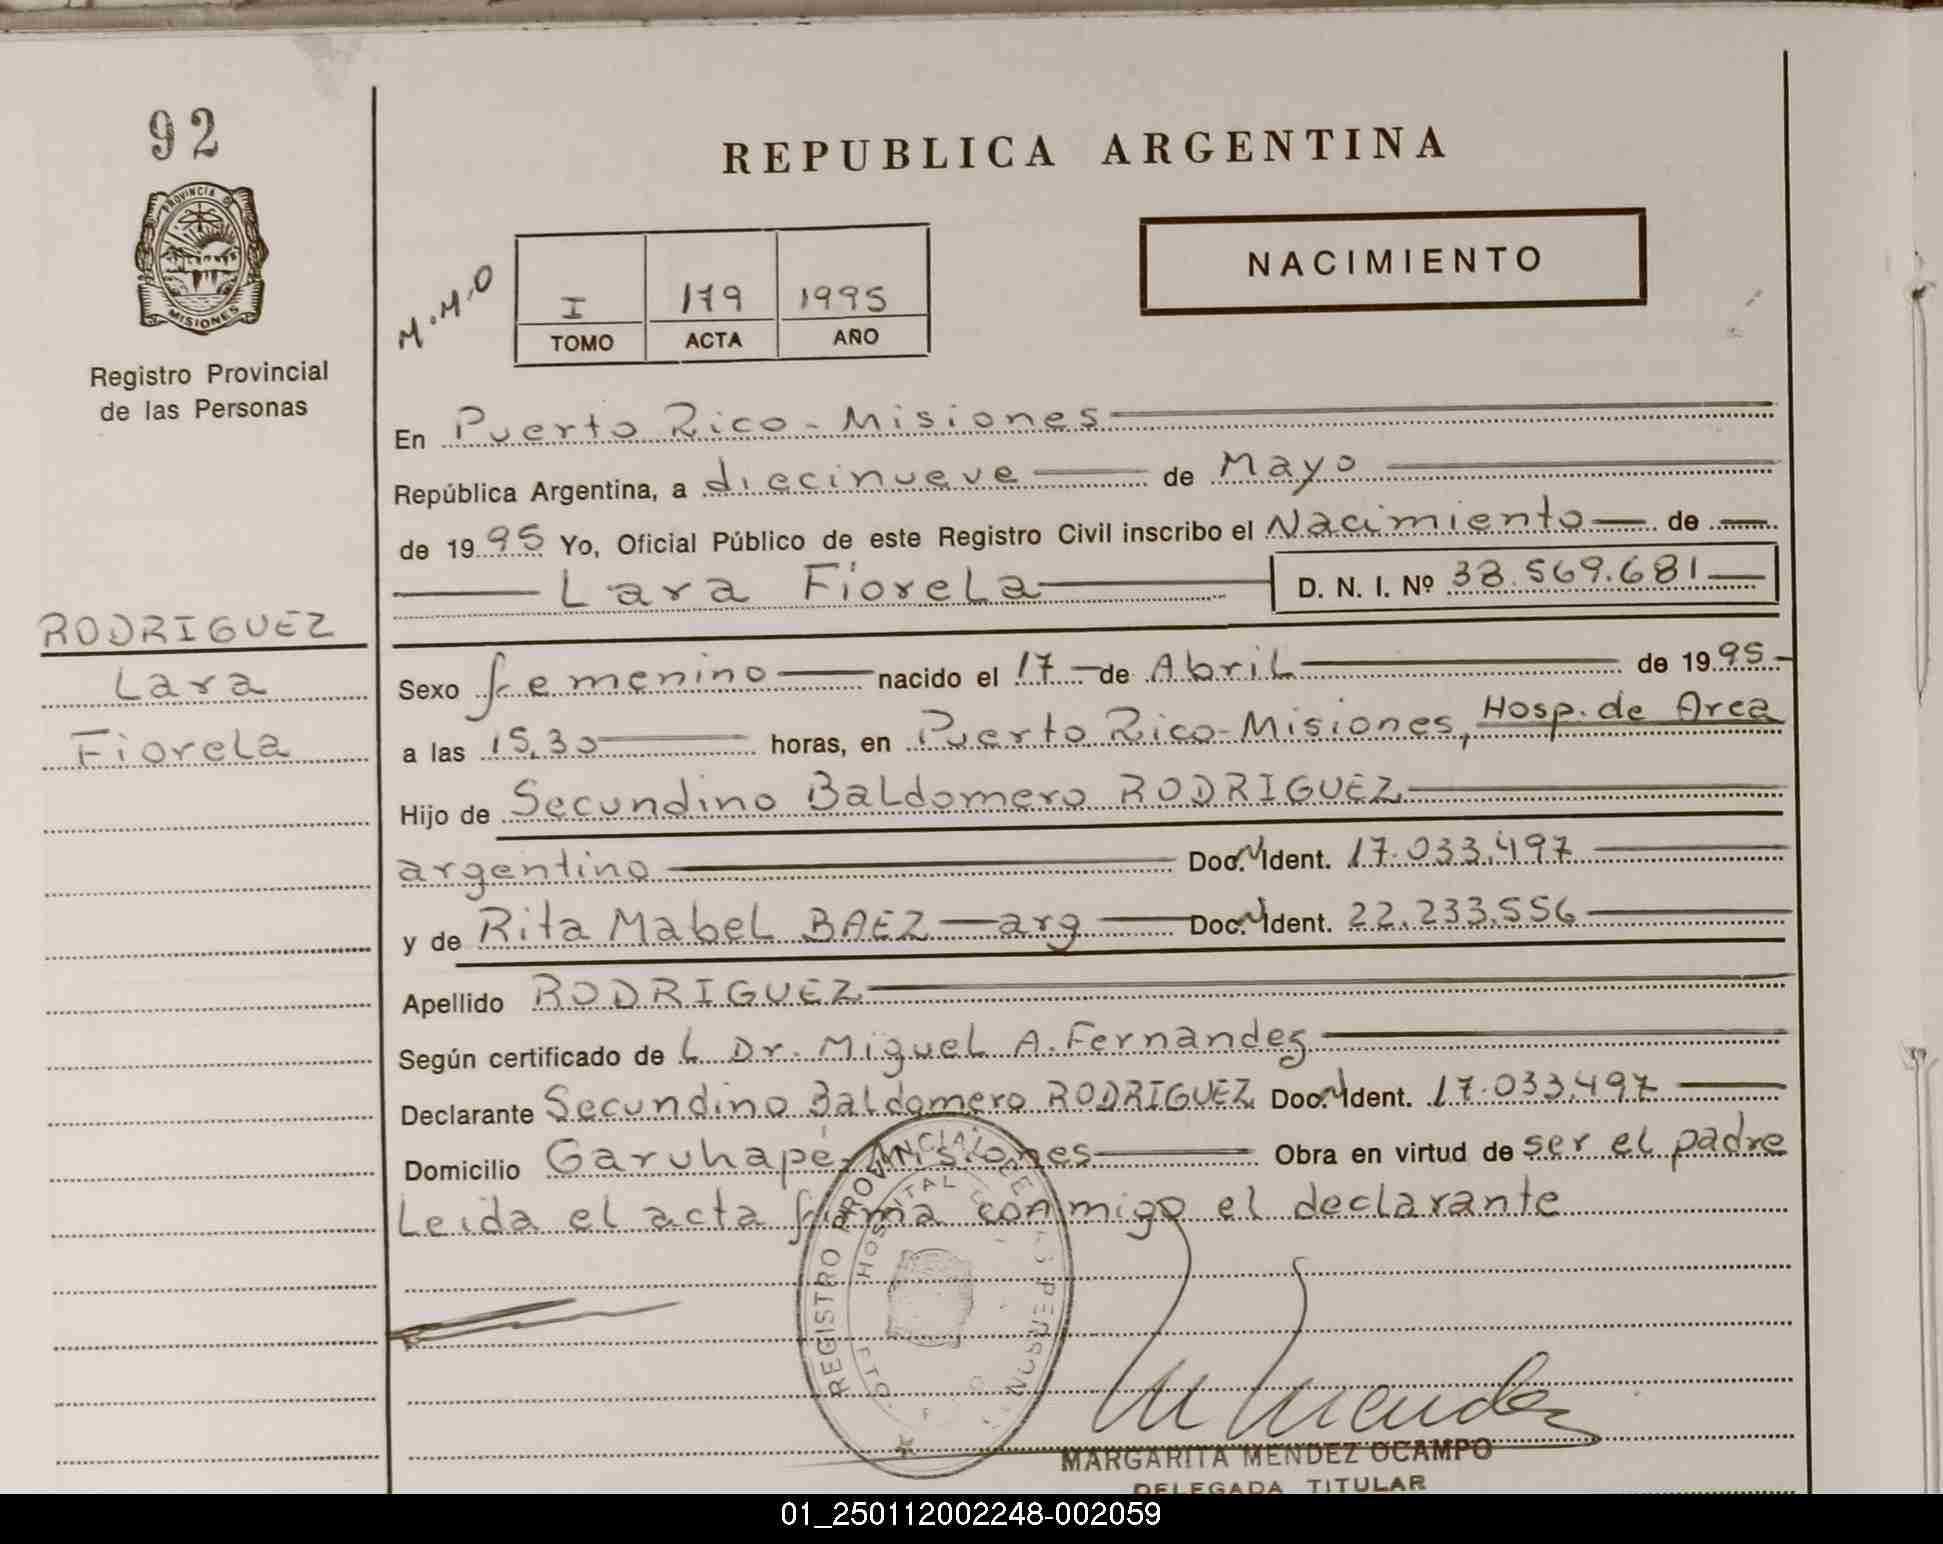 92
PROVINCIA DE
MISIONES
Registro Provincial
de las Personas
RODRIGUEZ
Lara
Fiorela
REPUBLICA ARGENTINA
NACIMIENTO
M.M.O
I 179 1995
TOMO ACTA AÑO
En Puerto Rico - Misiones
República Argentina, a diecinueve de Mayo
de 1995 Yo, Oficial Público de este Registro Civil inscribo el Nacimiento de
Lara Fiorela D. N. I. Nº 38.569.681
Sexo femenino nacido el 17 de Abril de 1995
a las 15,30 horas, en Puerto Rico-Misiones, Hosp. de Area
Hijo de Secundino Baldomero RODRIGUEZ
argentino Doc. Ident. 17.033.497
y de Rita Mabel BAEZ - arg Doc. Ident. 22.233.556
Apellido RODRIGUEZ
Según certificado de L Dr. Miguel A. Fernandez
Declarante Secundino Baldomero RODRIGUEZ Doc. Ident. 17.033.497
Domicilio Garuhapé - Misiones Obra en virtud de ser el padre
Leida el acta firma conmigo el declarante
REGISTRO PROVINCIAL DE LAS PERSONAS
HOSPITAL
M Mendez
MARGARITA MENDEZ OCAMPO
DELEGADA TITULAR
01_250112002248-002059